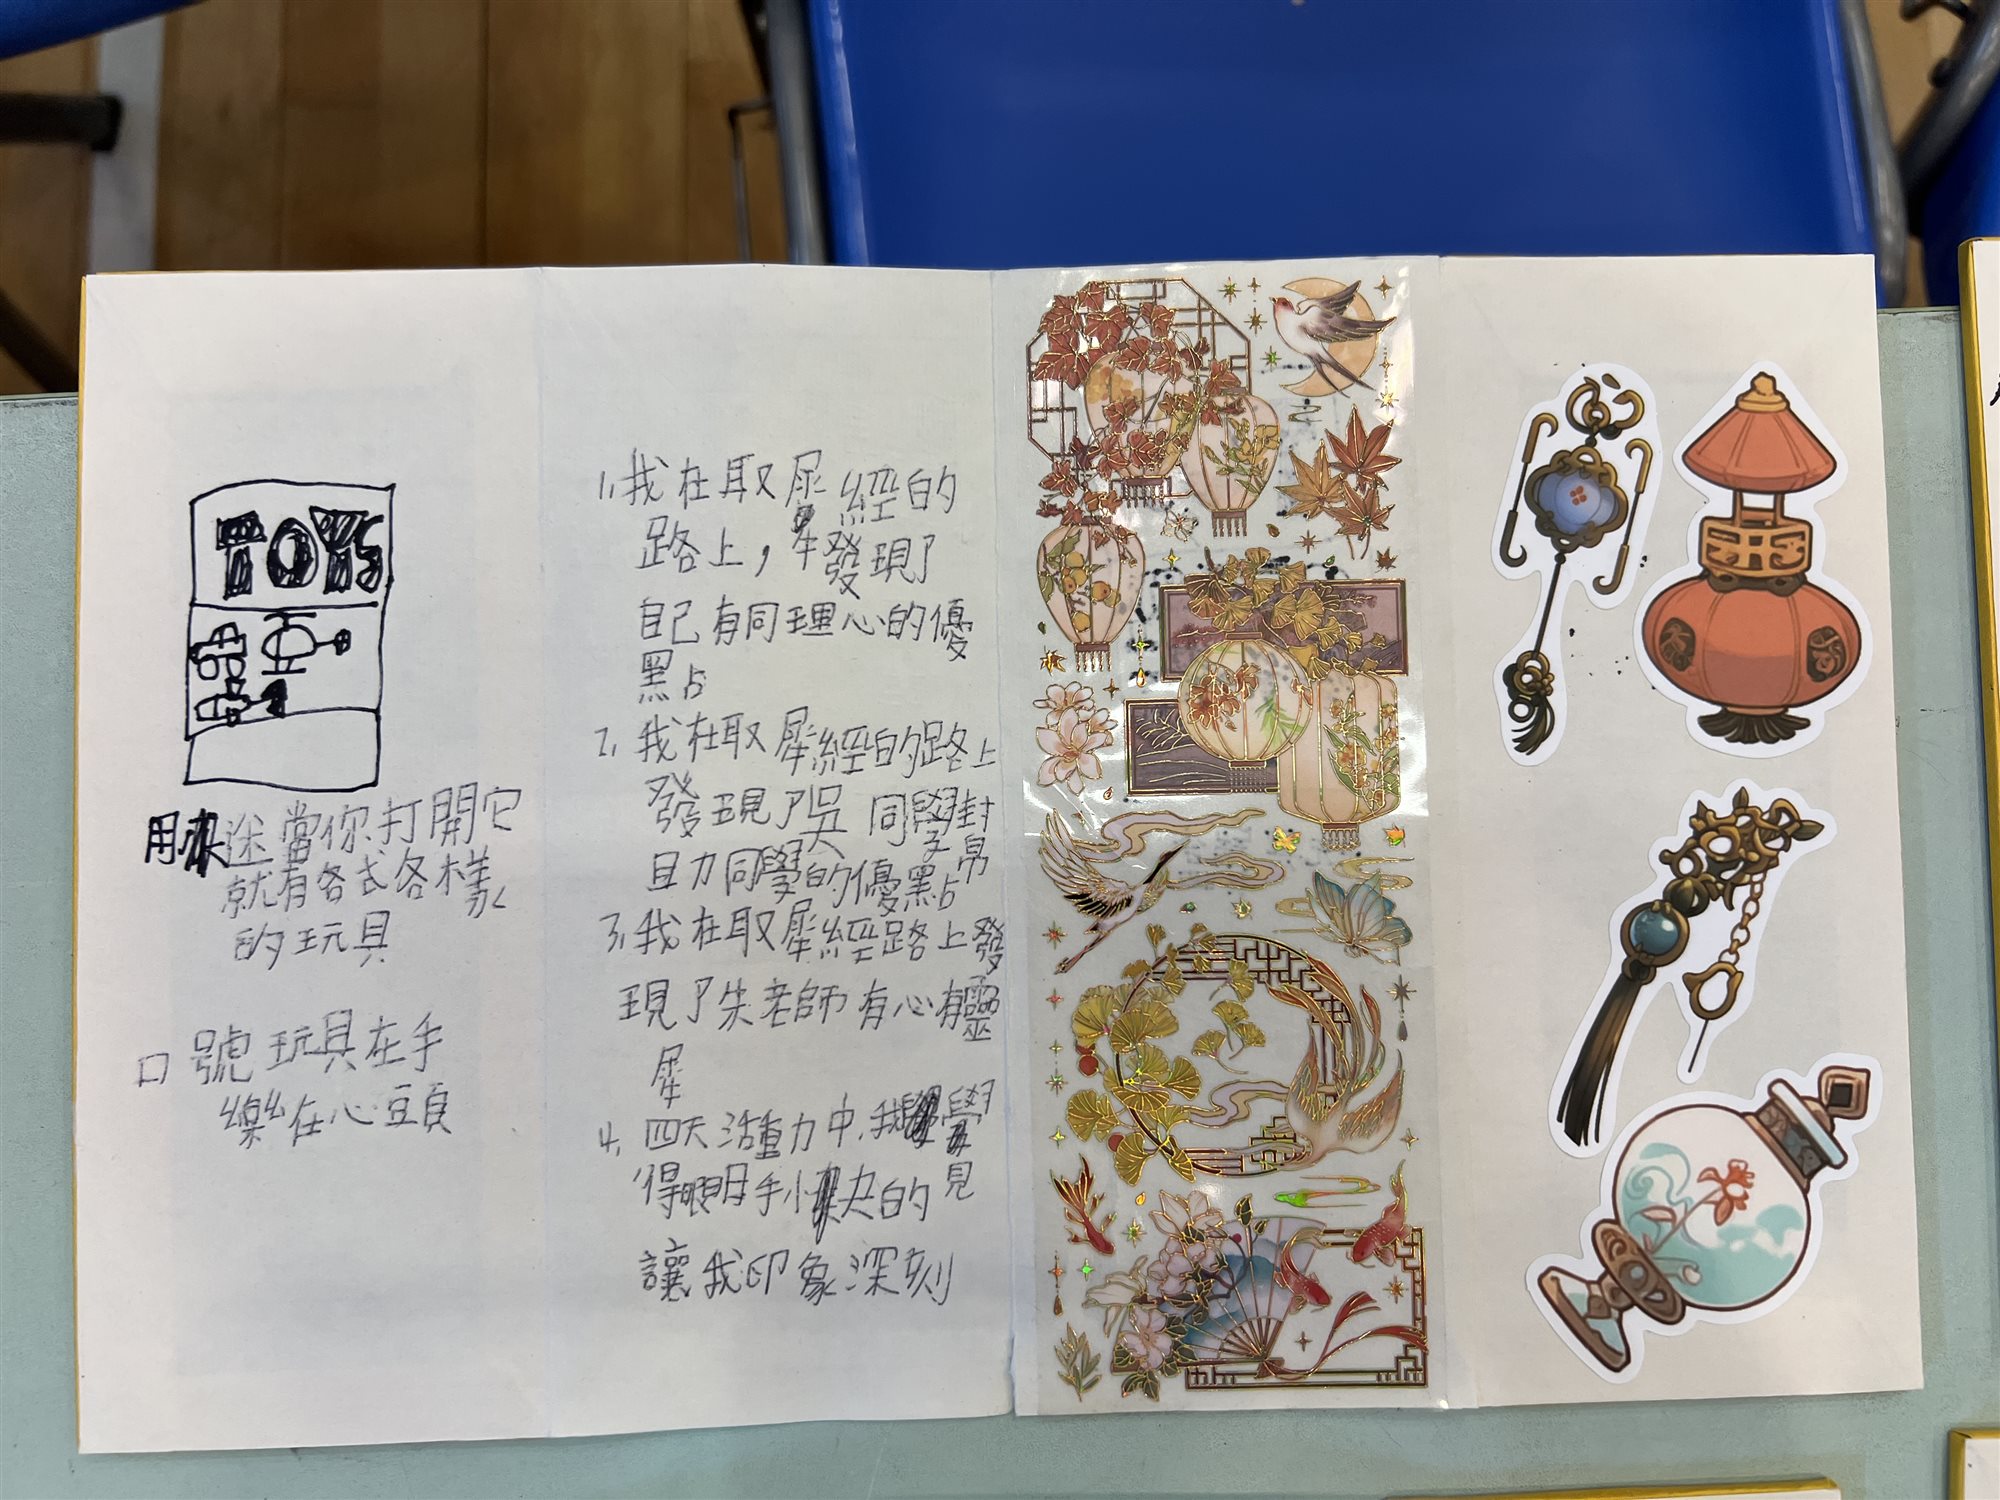 TOYS
用途當你打開它
就有各式各樣
的玩具
口號玩具在手
樂在心頭
1,我在取犀經的
路上,發現了
自己有同理心的優
點
2,我在取犀經的路上
發現了吳同學
助同學的優點
3,我在取犀經路上發
現了朱老師有心有靈
犀
4,四天活動中,我學
得眼明手快的
讓我印象深刻